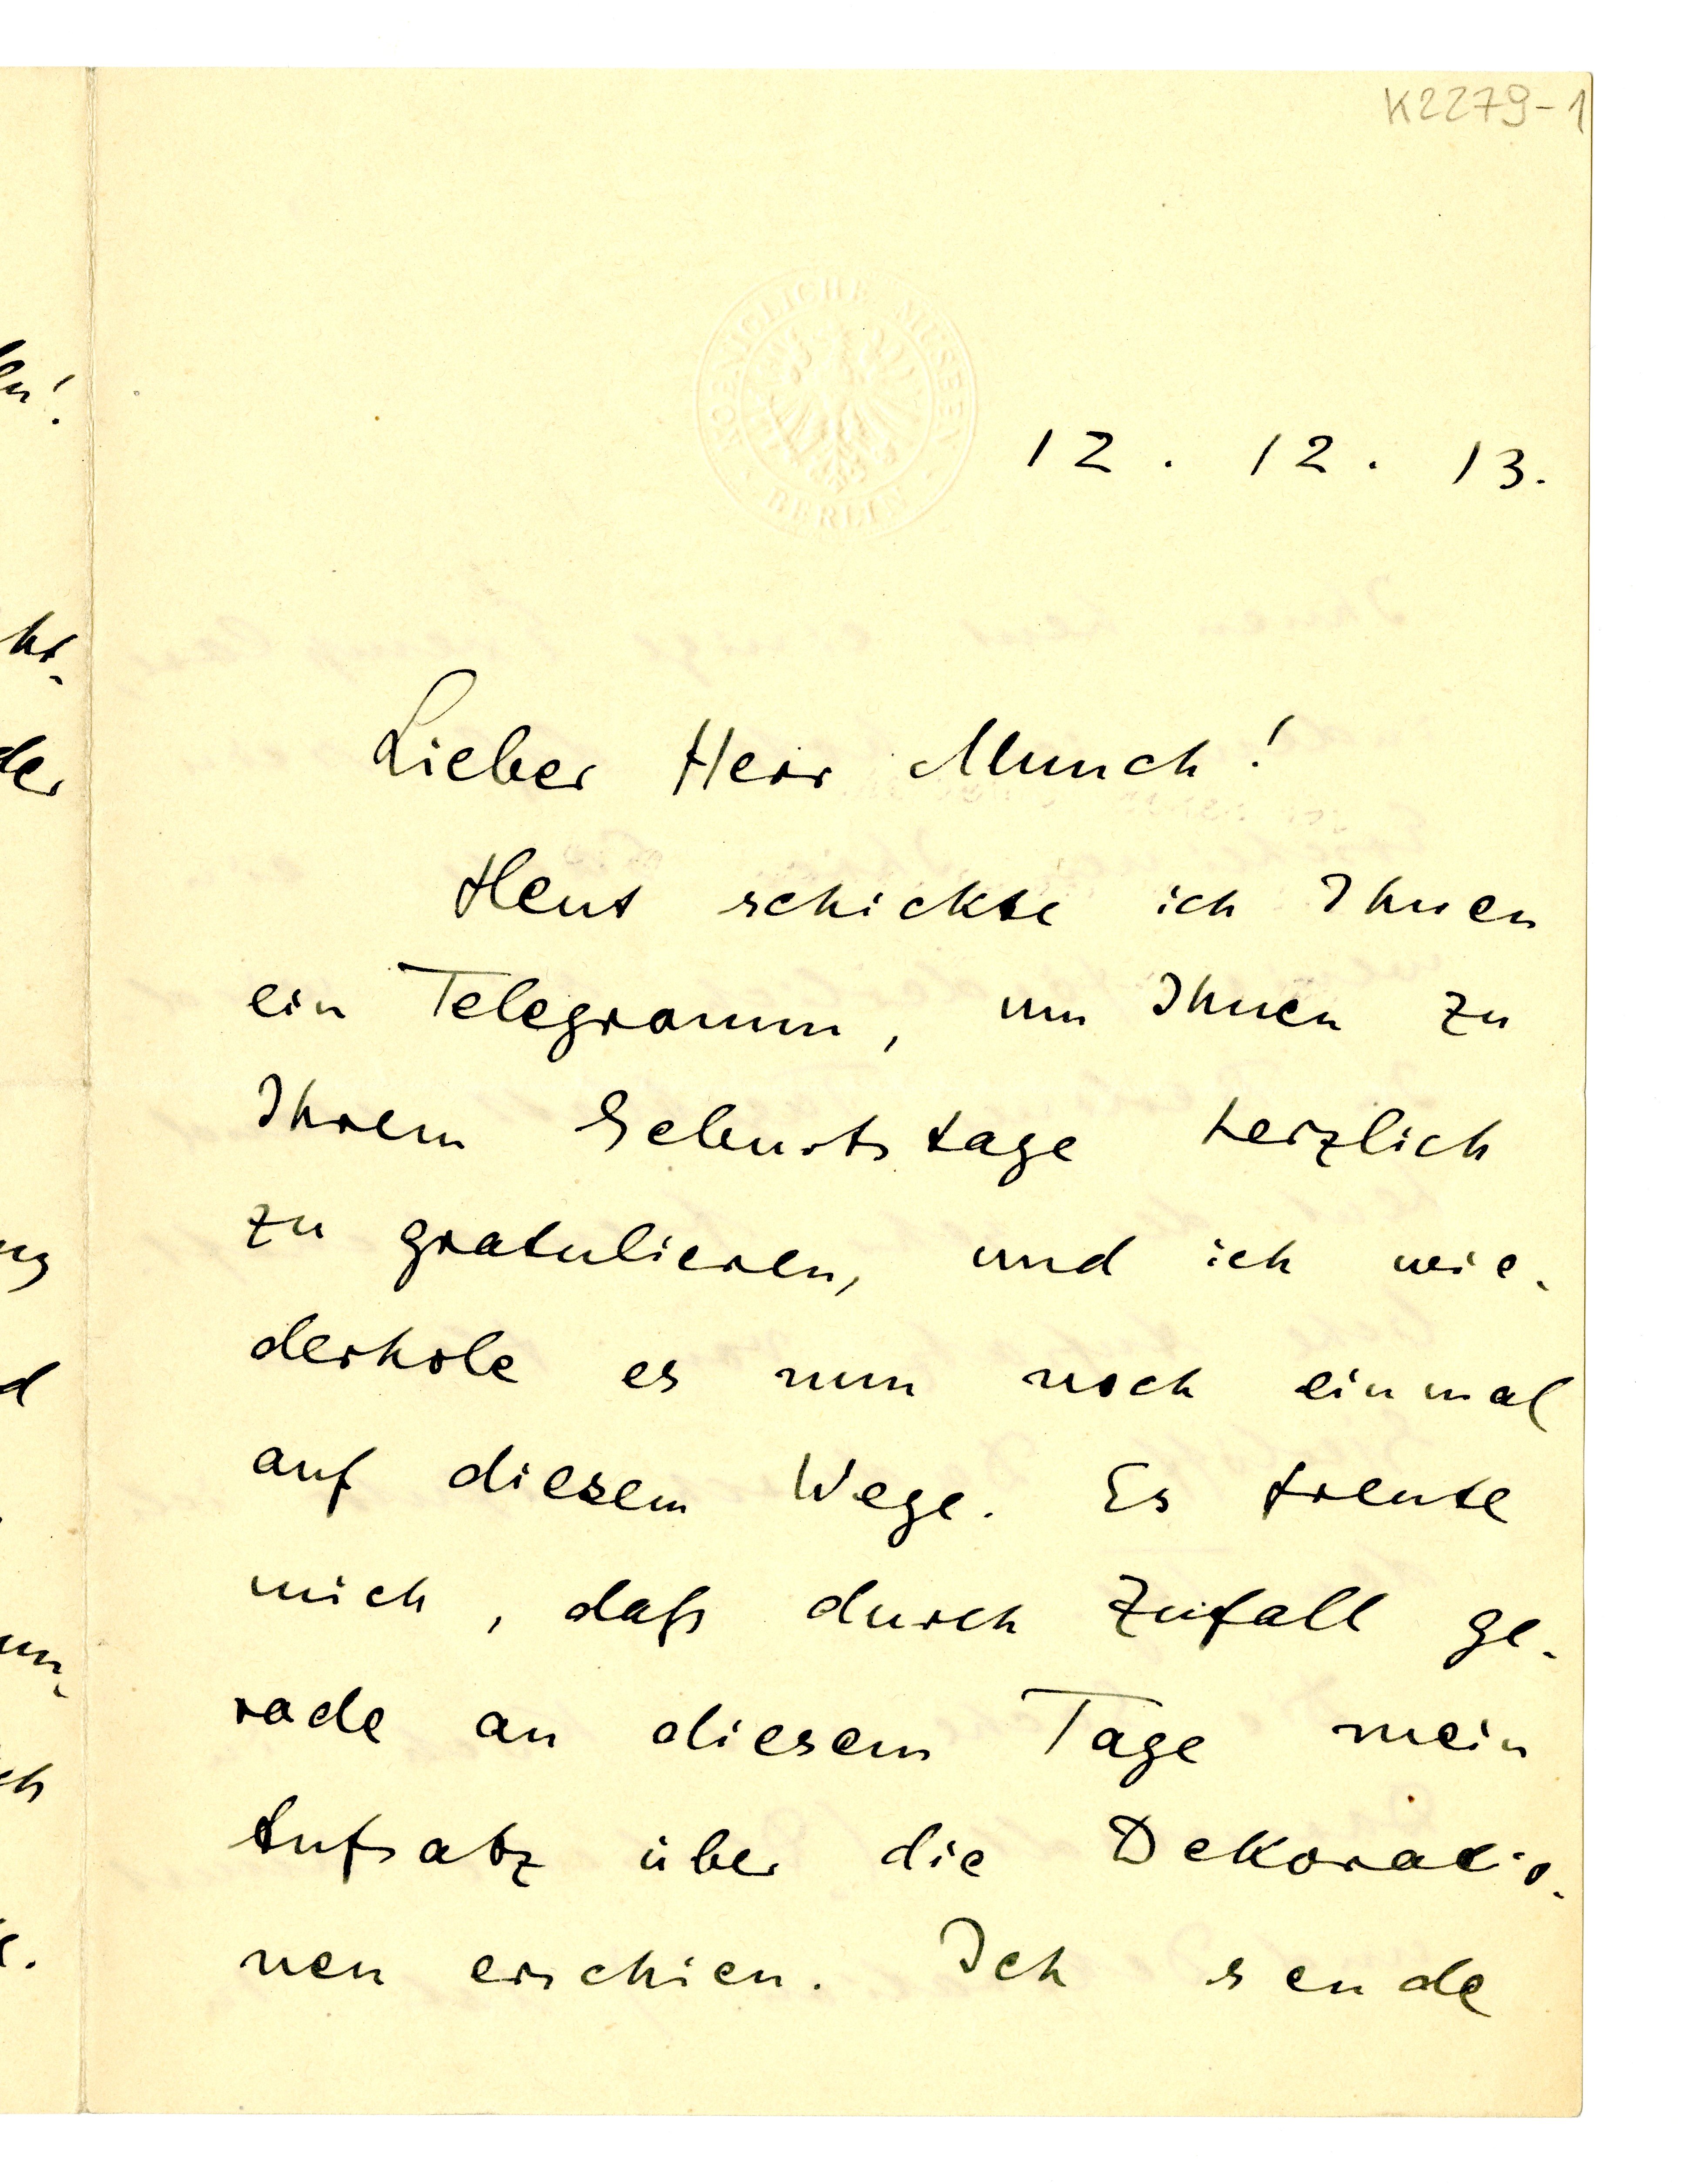 K2279-1
KOENIGLICHE MUSEEN BERLIN
12. 12. 13.
Lieber Herr Munch!
Heut schickte ich Ihnen
ein Telegramm, um Ihnen zu
Ihrem Geburtstage herzlich
zu gratulieren, und ich wie-
derhole es nun noch einmal
auf diesem Wege. Es freute
mich, daß durch Zufall ge-
rade an diesem Tage mein
Aufsatz über die Dekoratio-
nen erschien. Ich sende